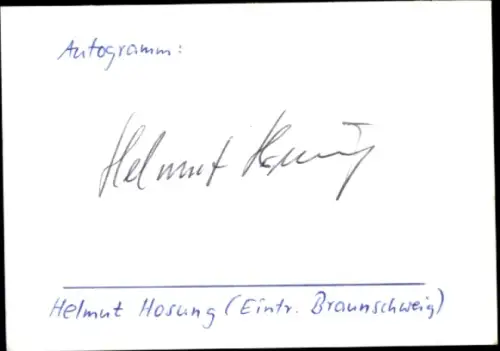 Autogramm:
Helmut Hosung
Helmut Hosung (Eintr. Braunschweig)